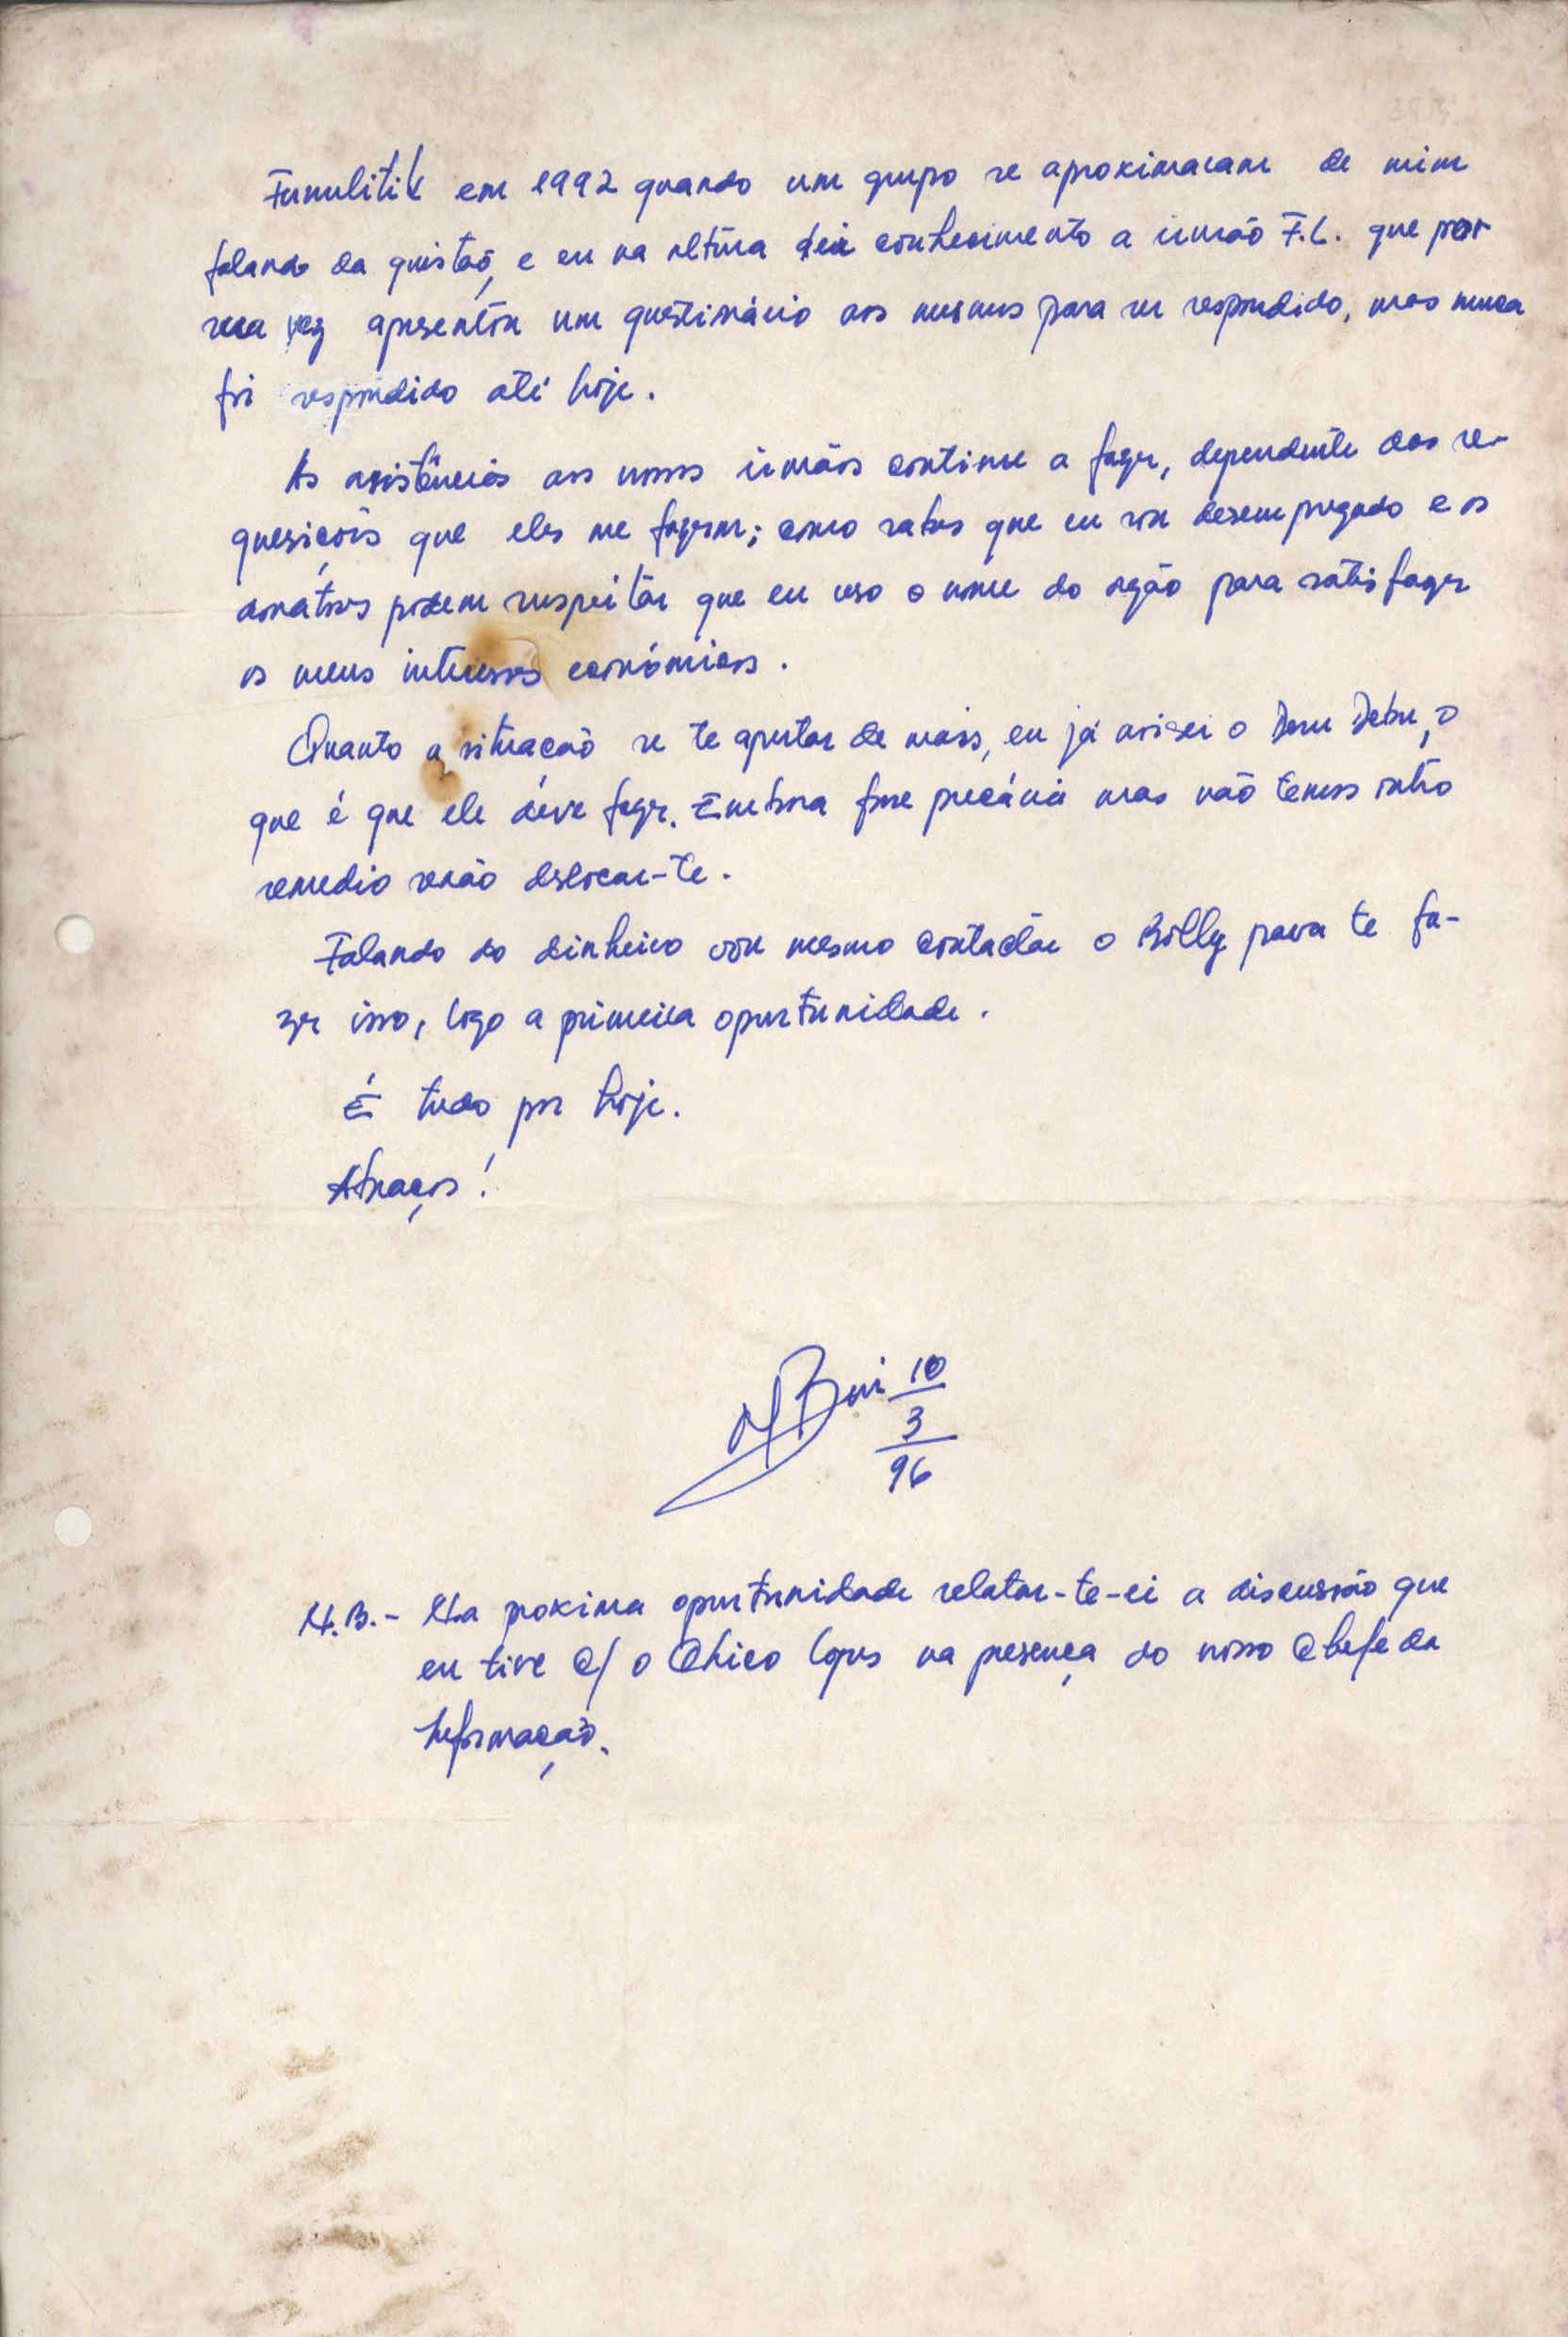 Funulitik em 1992 quando um grupo se aproximaram de mim
falando da questaõ, e eu na altura dei conhecimento a irmão F.L. que por
sua vez apresentou um questinário aos mesmos para ser respondido, mas nunca
foi respondido até hoje.
As asistências aos nossos irmãos continue a fazer, dependente das re-
quesições que eles me fazem; como sabes que eu sou desempregado e os
outros podem suspeitar que eu uso o nome do orgão para satisfazer
os meus interesses económicos.
Quanto a situacaõ se te apertar de mais, eu já avisei o Deru Debu, o
que é que ele deve fazer. Embora fosse precária mas não temos outro
remedio senão deslocar-te.
Falando do dinheiro vou mesmo contactar o Billy para te fa-
zer isso, logo a primeira oportunidade.
É tudo por hoje.
Abraços!
10
3
96
N.B.- Na proxima oportunidade relatar-te-ei a discussão que
eu tive c/ o Chico Lopes na presença do nosso Chefe da
Informaçaõ.